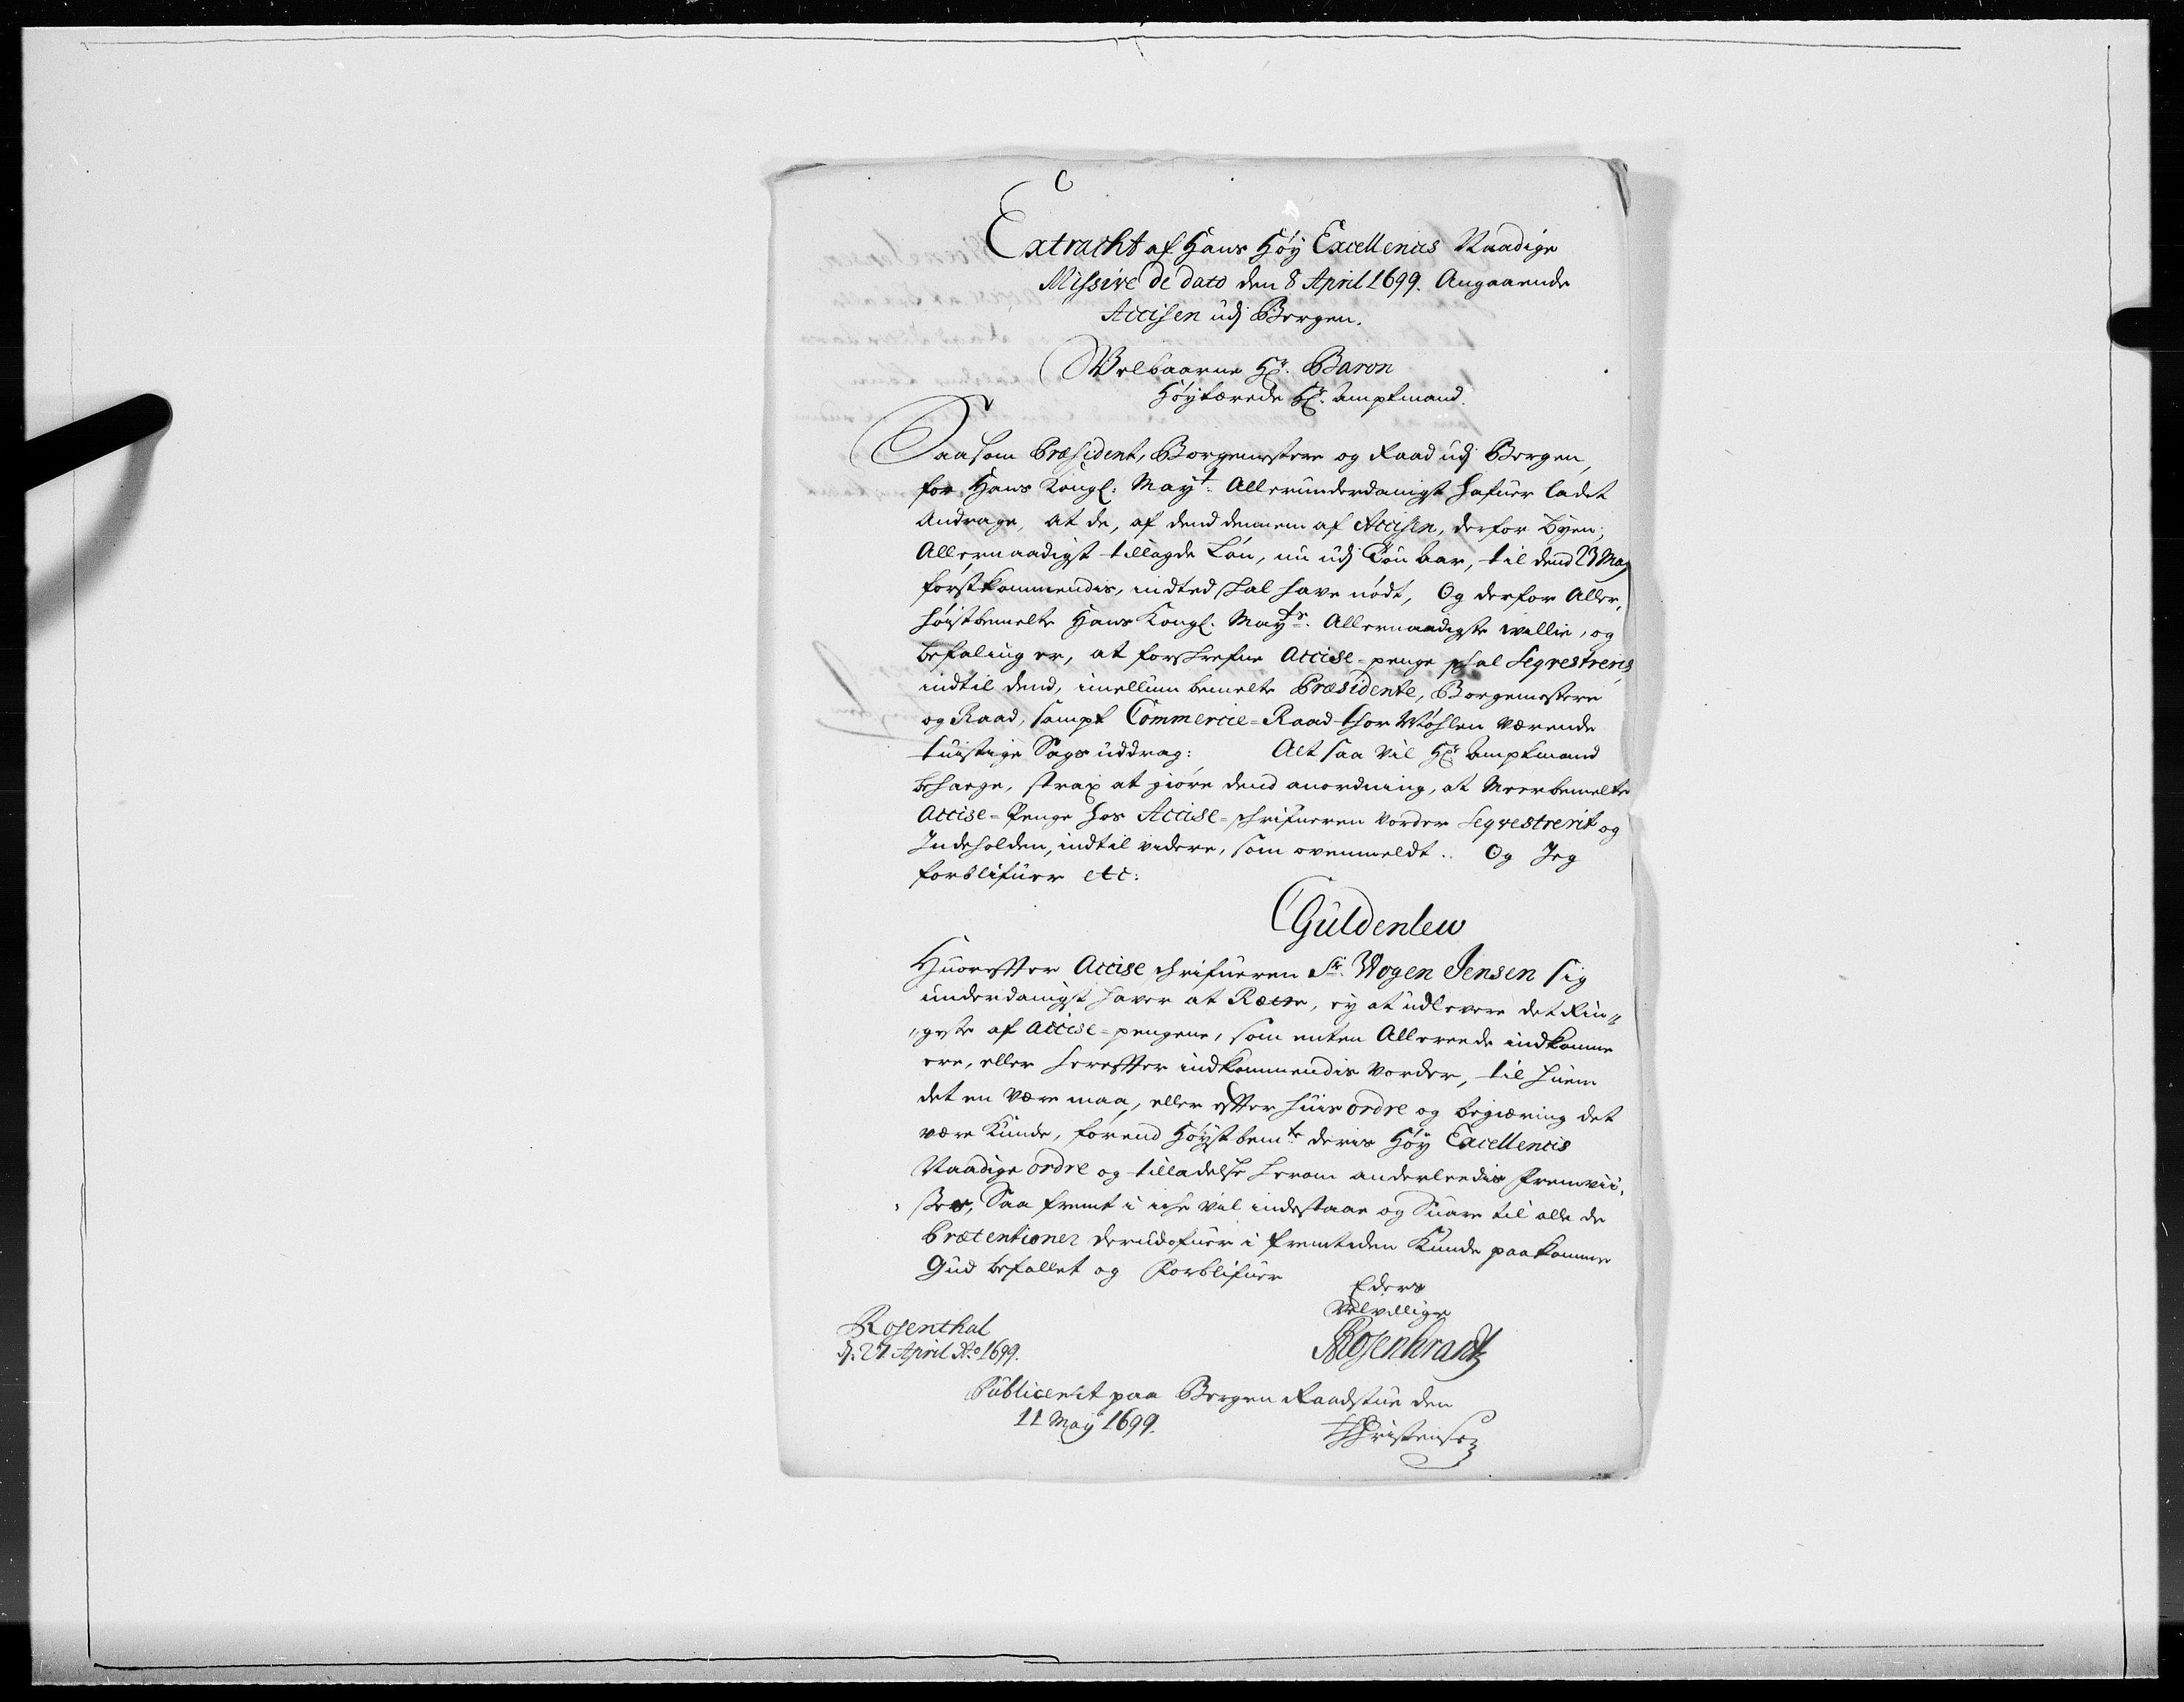 Extracht af Hans Høy Excellences Naadige
Missive de dato den 8 April 1699. Angaaende
Accisen udj Bergen.
Velbaarne Hr. Baron
Høytærede Hr. Amptmand.
Saasom Præsident, Borgemestere og Raad udj Bergen,
for Hans Kongl: Mayt: Allerunderdanigst hafuer ladet
Andrage, at de, af dend dennem af Accisen, derfor Byen,
Allernaadigst tillagde Løn, nu udj Tou Aar, til dend 23 May
førstkommendis, indted skal have nødt, Og derfor Aller,
høistbemelte Hans Kongl. Mayts. Allernaadigste willie, og
befaling er, at forskrefne Accise-penge skal Seqvestreris,
indtil dend, imellum bemelte Præsidente, Borgemestere
og Raad, sampt Commercie-Raad thor Møhlen værende
tuistige Sags uddrag: Alt saa vil Hr. Amptmand
behage, strax at giøre dend anordning, at Meerbemelte
Accise-Penge hos Accise-skrifueren vorder Seqvestrerit og
Indeholden, indtil videre, som ovenmeldt. Og Jeg
forblifuer etc:
Güldenlew
Huorefter Accise skrifueren Sr. Mogen Jensen sig
underdanigst haver at Rætte, ey at udlevere det Rin,,
,,geste af Accise-pengene, som enten Allereede indkomne
ere, eller herefter indkommendis vorder, til huem
det en være maa, eller efter huis ordre og begiæring det
være kunde, førend Høystbemte deris Høy Excellencis
Naadige ordre og tilladelse herom anderleedis fremvii,
,ser, Saa fremt i iche vil indestaae og Suare til alle de
Prætentioner derudofuer i fremtiden kunde paakomme
Gud befallet og forblifuer
Eders
Velvillige
Rosenthal
d: 27 April Ao. 1699.
Rosenkrantz
Publicerit paa Bergen Raadstue den
11 May 1699.
Christensen